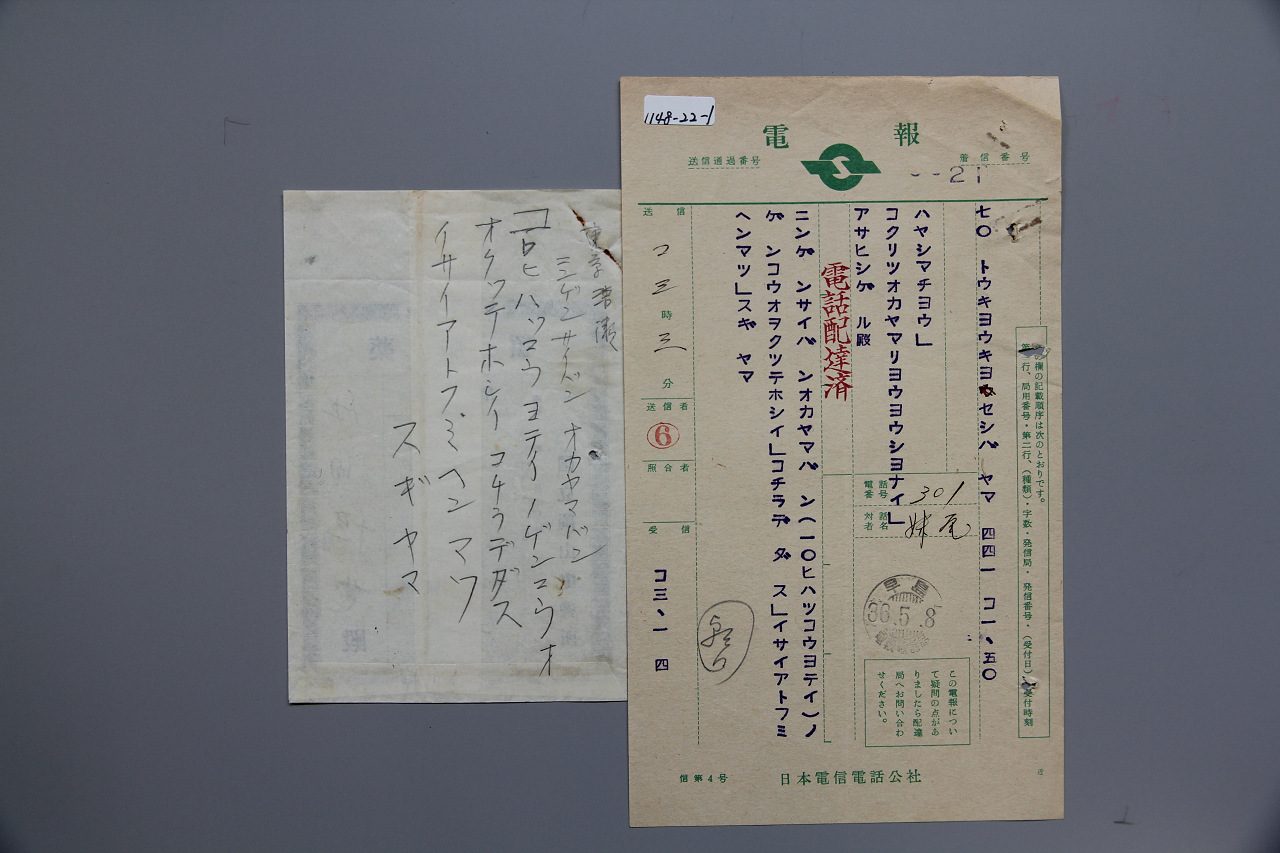 1148-22-1
電報
送信通過番号
着信番号
--21
次の欄の記載順序は次のとおりです。
第一行、局用番号・第二行、(種類)・字数・発信局・発信番号・(受付日)・受付時刻
七〇 トウキヨウキヨウセシバ ヤマ 四四一 コ一、五〇
ハヤシマチヨウ」
コクリツオカヤマリヨウヨウシヨナイ」
アサヒシゲ ル殿
電話配達済
ニンゲ ンサイバ ンオカヤマバ ン(一〇ヒハツコウヨテイ)ノ
ゲ ンコウオヲクツテホシイ」コチラデ ダ ス」イサイアトフミ
ヘンマツ」スギ ヤマ
電話番号
301
対話者名
妹尾
早島
36.5.8
この電報につい
て疑問の点があ
りましたら配達
局へお問い合わ
せください。
送信
コ 三 時 三 分
送信者
6
照合者
受信
コ 三、一 四
信第4号
日本電信電話公社
ニンゲンサイバン オカヤマバン
一〇ヒハツコウヨテイノゲンコウオ
オクツテホシイ コチラデダス
イサイアトフミ ヘンマツ
スギヤマ
殿